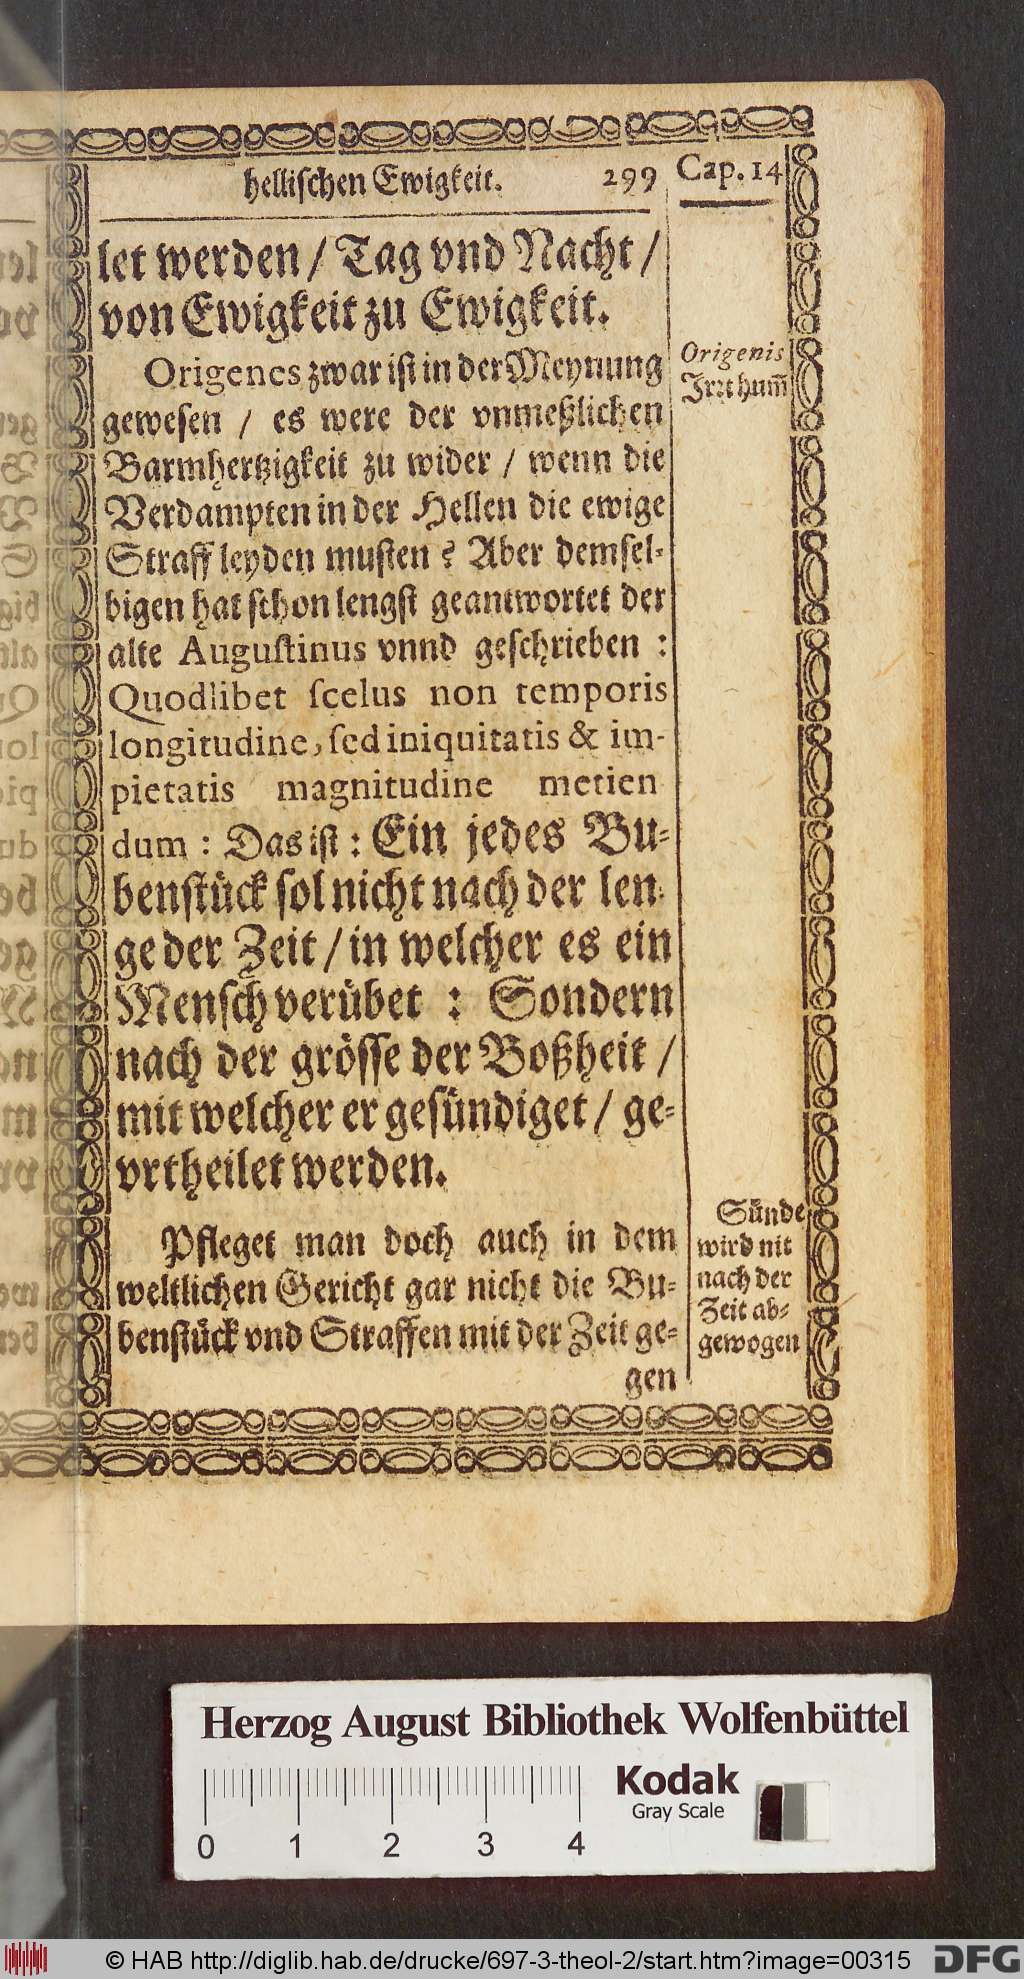 hellischen Ewigkeit. 299 Cap. 14
let werden / Tag vnd Nacht /
von Ewigkeit zu Ewigkeit.
Origenes zwar ist in der Meynung
gewesen / es were der vnmeßlichen
Barmhertzigkeit zu wider / wenn die
Verdampten in der Hellen die ewige
Straff leyden musten? Aber demsel-
bigen hat schon lengst geantwortet der
alte Augustinus vnnd geschrieben :
Quodlibet scelus non temporis
longitudine, sed iniquitatis & im-
pietatis magnitudine metien
dum : Das ist : Ein jedes Bu-
benstück sol nicht nach der len-
ge der Zeit / in welcher es ein
Mensch verübet : Sondern
nach der grösse der Boßheit /
mit welcher er gesündiget / ge-
vrtheilet werden.
Pfleget man doch auch in dem
weltlichen Gericht gar nicht die Bu-
benstück vnd Straffen mit der Zeit ge-
gen
Origenis
Irrthum̃
Sünde
wird nit
nach der
Zeit ab-
gewogen
Herzog August Bibliothek Wolfenbüttel
Kodak
Gray Scale
0 1 2 3 4
© HAB http://diglib.hab.de/drucke/697-3-theol-2/start.htm?image=00315
DFG